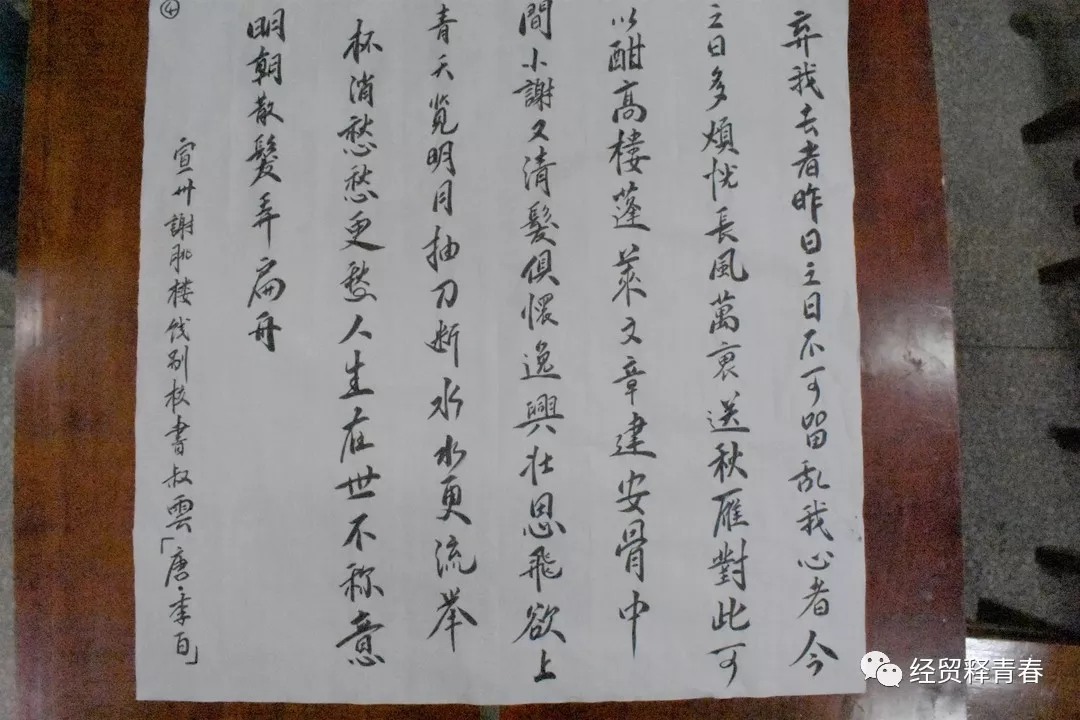 弃我去者昨日之日不可留乱我心者今
之日多煩忧長風萬裏送秋雁對此可
以酣高楼蓬萊文章建安骨中
間小謝又清髮俱懷逸興壯思飛欲上
青天览明月抽刀断水水更流举
杯消愁愁更愁人生在世不称意
明朝散髮弄扁舟
宣州謝朓楼饯别校書叔雲「唐·李白」
④
经贸释青春